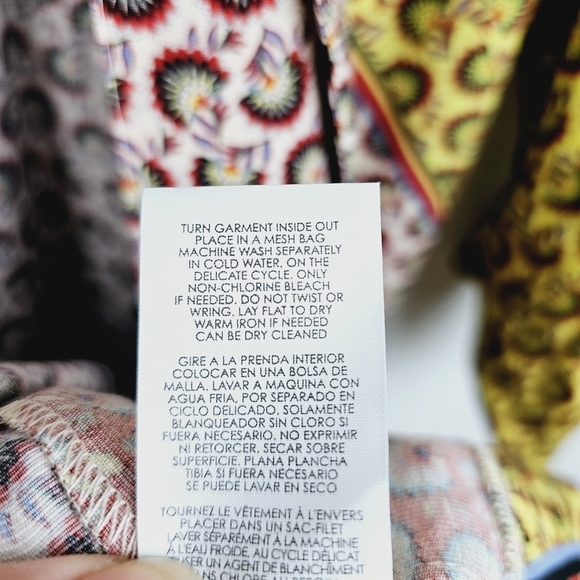 TURN GARMENT INSIDE OUT
PLACE IN A MESH BAG
MACHINE WASH SEPARATELY
IN COLD WATER, ON THE
DELICATE CYCLE. ONLY
NON-CHLORINE BLEACH
IF NEEDED. DO NOT TWIST OR
WRING. LAY FLAT TO DRY
WARM IRON IF NEEDED
CAN BE DRY CLEANED
GIRE A LA PRENDA INTERIOR
COLOCAR EN UNA BOLSA DE
MALLA. LAVAR A MAQUINA CON
AGUA FRIA, POR SEPARADO EN
CICLO DELICADO. SOLAMENTE
BLANQUEADOR SIN CLORO SI
FUERA NECESARIO. NO EXPRIMIR
NI RETORCER. SECAR SOBRE
SUPERFICIE. PLANA PLANCHA
TIBIA SI FUERA NECESARIO
SE PUEDE LAVAR EN SECO
TOURNEZ LE VÊTEMENT À L'ENVERS
PLACER DANS UN SAC-FILET
LAVER SÉPARÉMENT À LA MACHINE
À L'EAU FROIDE, AU CYCLE DÉLICAT
USER AGENT DE BLANCHÎMENT
SANS CHLORE AU